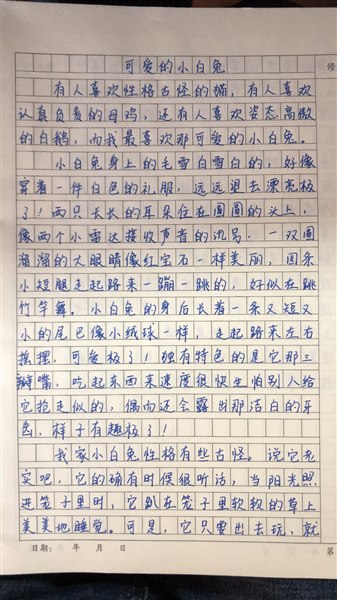 可爱的小白兔
有人喜欢性格古怪的猫，有人喜欢
认真负责的母鸡，还有人喜欢姿态高傲
的白鹅，而我最喜欢那可爱的小白兔。
小白兔身上的毛雪白雪白的，好像
穿着一件白色的礼服，远远望去漂亮极
了！两只长长的耳朵住在圆圆的头上，
像两个小雷达接收声音的讯号，一双圆
溜溜的大眼睛像红宝石一样美丽，四条
小短腿走起路来一蹦一跳的，好似在跳
竹竿舞。小白兔的身后长着一条又短又
小的尾巴像小绒球一样，走起路来左右
摇摆，可爱极了！独有特色的是它那三
瓣嘴，吃起东西来速度很快生怕别人给
它抢走似的，偶而还会露出那洁白的牙
齿，样子有趣极了！
我家小白兔性格有些古怪。说它老
实吧，它的确有时候很听话，当阳光照
进笼子里时，它趴在笼子里软软的草上
美美地睡觉。可是，它只要出去玩，就
日期： 年 月 日
修
第